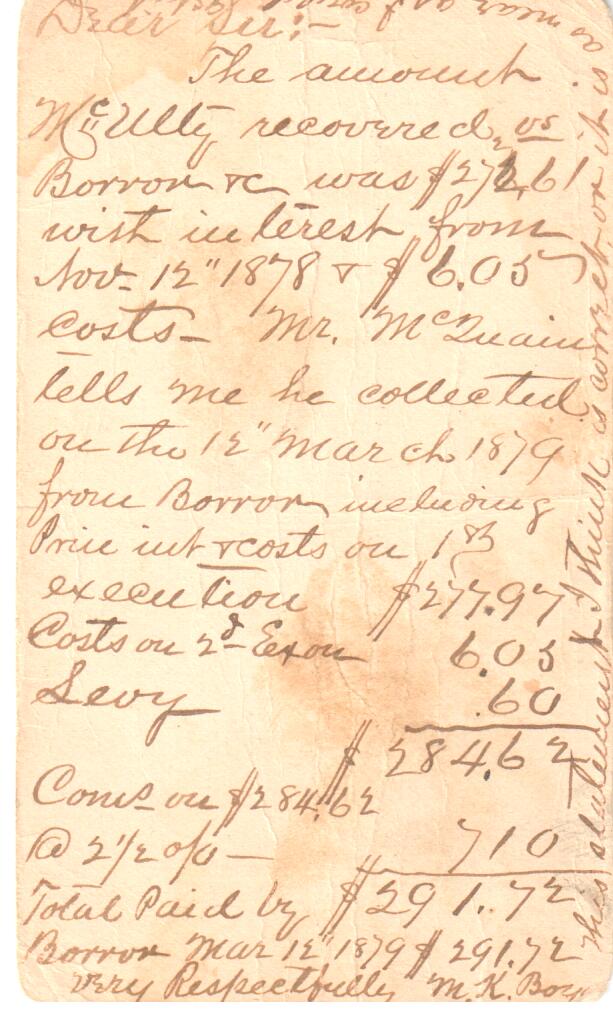 Dear Sir:—
The amount
McUlty recovered vs
Borror &c was $272.61
with interest from
Nov- 12" 1878 & $6.05
costs— Mr. McQuain
tells me he collected
on the 12" March 1879
from Borror including
Prin int & costs on 1st
execution $277.97
Costs on 2d Exon 6.05
Levy .60
$284.62
Coms on $284.62
@ 2 1/2 o/o — 710
Total Paid by $291.72
Borror Mar 12" 1879 $291.72
Very Respectfully M.K. Boy
This statement I think is correct or it is
as near as